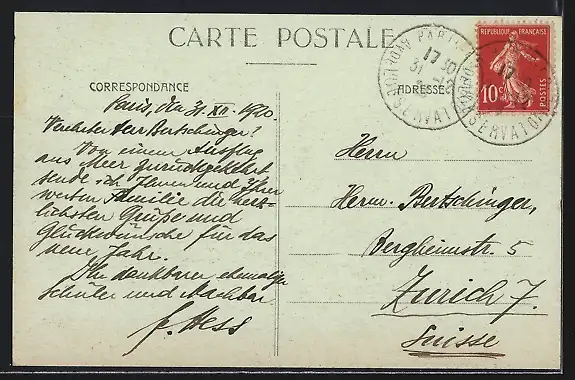 CARTE POSTALE
CORRESPONDANCE
ADRESSE
REPUBLIQUE FRANÇAISE
10c
POSTES
PARIS
17 30
31
OBSERVATOIRE
Paris, den 31. XII. 1910.
Verehrter Herr Bertschinger!
Von einem Ausflug
ans Meer zurückgekehrt
sende ich Ihnen und Ihrer
werten Familie die herz-
lichsten Grüße und
Glückwünsche für das
neue Jahr.
Ihr dankbarer ehemaliger
Schüler und Nachbar
Hess
Herrn
Herm. Bertschinger,
Bergheimstr. 5
Zürich 7.
Suisse